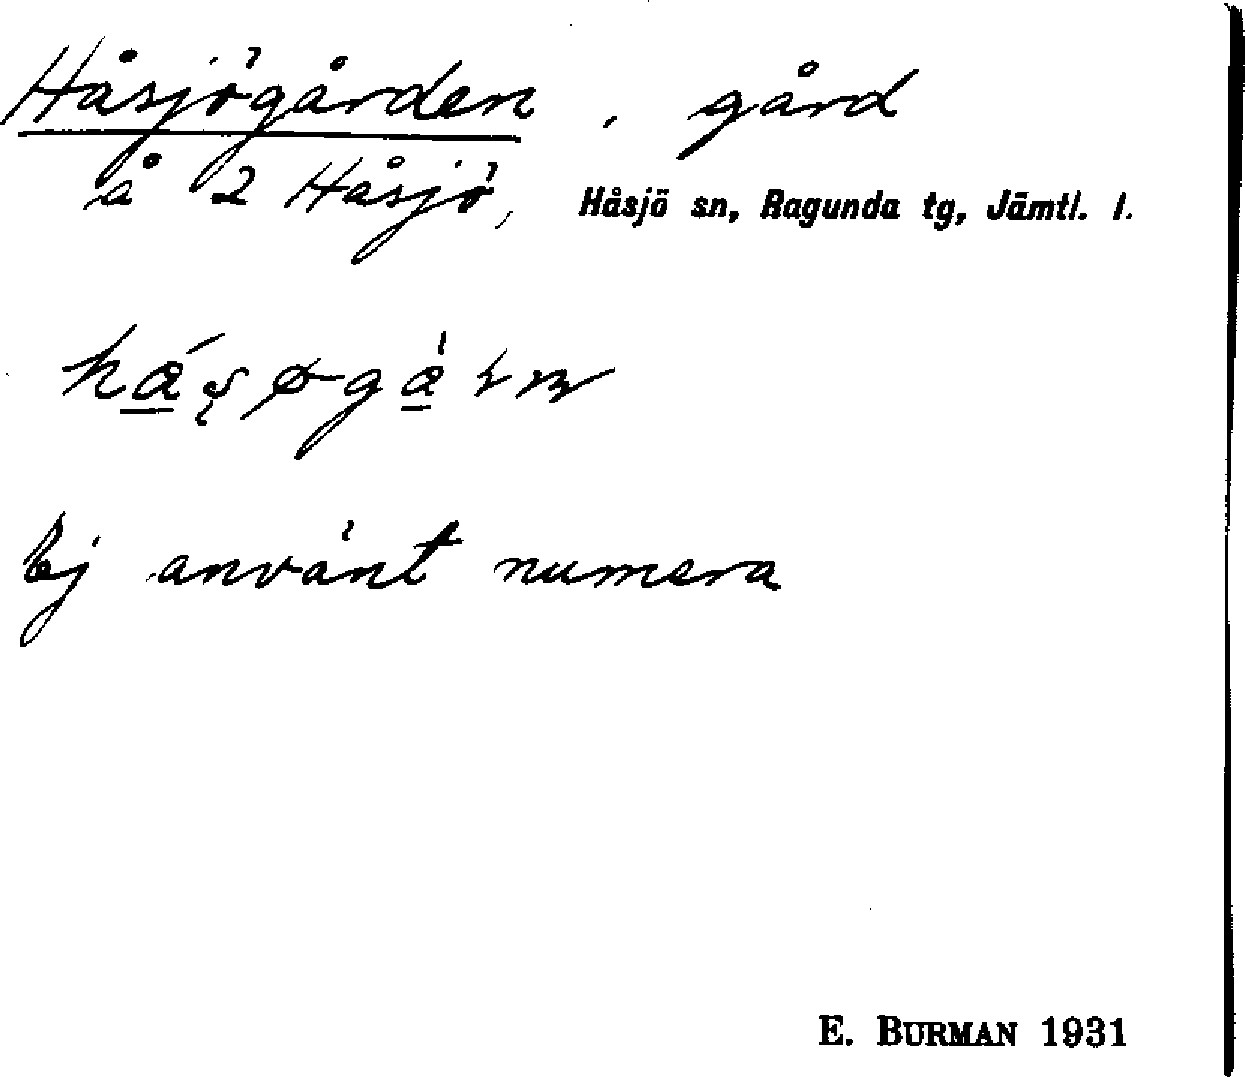 Håsjögården, gård
å 2 Håsjö, Håsjö sn, Ragunda tg, Jämtl. l.
Ej använt numera
E. BURMAN 1931